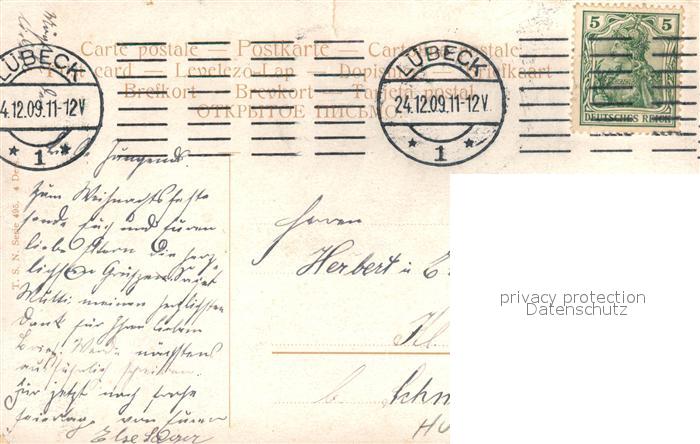 Carte postale — Postkarte — Carte postale
Postcard — Levelező-Lap — Dopisnice — Briefkaart
Brefkort — Brevkort — Tarjeta postal
ОТКРЫТОЕ ПИСЬМО
LÜBECK
24.12.09.11-12V
* 1 *
LÜBECK
24.12.09.11-12V
* 1 *
5 5
DEUTSCHES REICH
T. S. N. Serie 495. 4 De
Jungens.
Zum Weihnachtsfeste
sende Euch und Euren
lieben Eltern die herz
lichsten Grüße. Sagt
Mutti meinen herzlichsten
Dank für Ihren lieben
Brief. Werde nächstens
ausführlich schreiben.
Für jetzt noch frohe
Feiertage, von Eurer
Else
Herren
Herbert u
Kl
b. Schm
privacy protection
Datenschutz